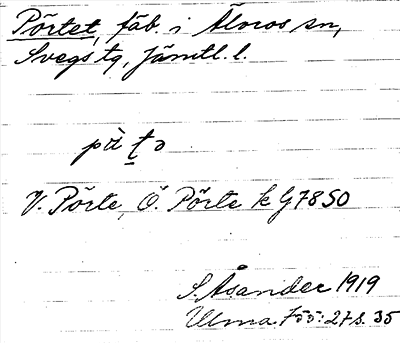 Pörtet, fäb. i Älvros sn,
Svegs tg, Jämtl. l.
V. Pörte, Ö. Pörte k G 7850
S. Åsander 1919
Ulma 755: 27 s. 35